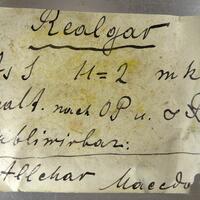 Realgar
As S H=2 mk
spalt. nach OP u.
sublimirbar.
Allchar Macedo